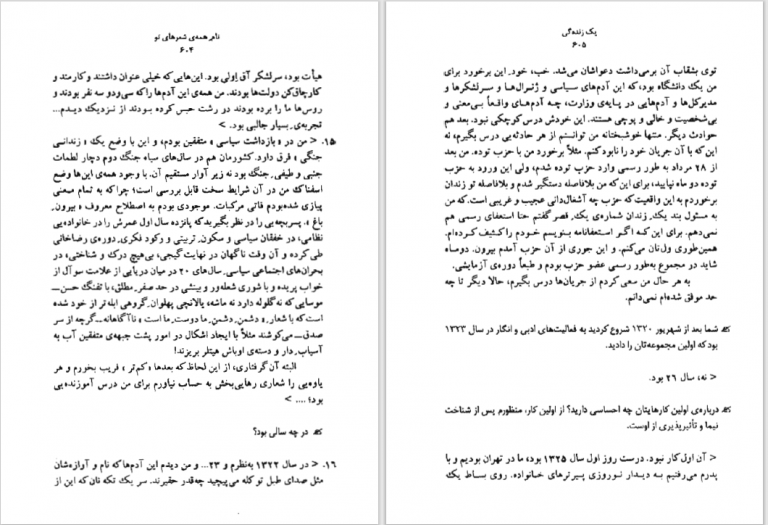 نام همه‌ی شعرهای تو
۶۰۴
هیأت بود، سرلشگر آق اِولی بود. این‌هایی که خیلی عنوان داشتند و کارمند و
کارچاق‌کن دولت‌ها بودند. من همه‌ی این آدم‌ها را که سی‌ودو سه نفر بودند و
روس‌ها ما را برده بودند در رشت حبس کرده بودند از نزدیک دیدم...
تجربه‌ی بسیار جالبی بود. >
۱۵. < من در «بازداشت سیاسی» متفقین بودم، و این با وضع یک «زندانی
جنگی» فرق دارد. کشورمان هم در سال‌های سیاه جنگ دوم دچار لطمات
جنبی و طیفی جنگ بود نه زیر آوار مستقیم آن. با وجود همه‌ی این‌ها وضع
اسفناک من در آن شرایط سخت قابل بررسی است؛ چرا که به تمام معنی
پیازی شده‌بودم قاتی مرکبات. موجودی بودم به اصطلاح معروف «بیرون
باغ». پسربچه‌یی را در نظر بگیرید که پانزده سال اول عمرش را در خانواده‌یی
نظامی، در خفقان سیاسی و سکون تربیتی و رکود فکری دوره‌ی رضاخانی
طی کرده و آن وقت ناگهان در نهایت گیجی، بی‌هیچ درک و شناختی، در
بحران‌های اجتماعی سیاسی سال‌های ۲۰ در میان دریایی از علامت سوآل از
خواب پریده و با شوری شعله‌ور و بینشی در حد صفر مطلق، با تفنگ حسن
موسایی که نه گلوله دارد نه ماشه، یالانچی پهلوان گروهی ابله‌تر از خود شده
است که با شعار «دشمن دشمن ما دوست ما است» ناآگاهانه ــ گرچه از سر
صدق ــ می‌کوشند مثلاً با ایجاد اشکال در امور پشت جبهه‌ی متفقین آب به
آسیاب دار و دسته‌ی اوباش هیتلر بریزند!
البته آن گرفتاری، از این لحاظ که بعدها «کم‌تر» فریب بخورم و هر
یاوه‌یی را شعاری رهایی‌بخش به حساب نیاورم برای من درس آموزنده‌یی
بود؛ .... >
در چه سالی بود؟
۱۶. < در سال ۱۳۲۲ به‌نظرم و ۲۳... و من دیدم این آدم‌ها که نام و آوازه‌شان
مثل صدای طبل تو کله می‌پیچید چه‌قدر حقیرند. سر یک تکه نان که این از
یک زنده‌گی
۶۰۵
توی بشقاب آن برمی‌داشت دعواشان می‌شد. خب، خود این برخورد برای
من یک دانشگاه بود، که این آدم‌های سیاسی و ژنرال‌ها و سرلشگرها و
مدیرکل‌ها و آدم‌هایی در پایه‌ی وزارت، چه آدم‌های واقعاً بی‌معنی و
بی‌شخصیت و خالی و پوچی هستند. این خودش درس کوچکی نبود. بعد هم
حوادث دیگر. منتها خوشبختانه من توانستم از هر حادثه‌یی درس بگیرم، نه
این که با آن جریان خود را نابود کنم. مثلاً برخورد من با حزب توده. من بعد
از ۲۸ مرداد به طور رسمی وارد حزب توده شدم، ولی این ورود به حزب
توده دو ماه نپایید، برای این که من بلافاصله دستگیر شدم و بلافاصله تو زندان
برخوردم به این واقعیت که حزب چه آشغال‌دانی عجیب و غریبی است. که من
به مسئول بند یک زندان شماره‌ی یک قصر گفتم حتا استعفای رسمی هم
نمی‌دهم. برای این که اگر استعفانامه بنویسم خودم را کثیف کرده‌ام.
همین‌طوری ول‌تان می‌کنم. و این جوری از آن حزب آمدم بیرون. دوماه
شاید در مجموع به‌طور رسمی عضو حزب بودم و طبعاً دوره‌ی آزمایشی.
به هر حال من سعی کردم از جریان‌ها درس بگیرم، حالا دیگر تا چه
حد موفق شده‌ام نمی‌دانم.
شما بعد از شهریور ۱۳۲۰ شروع کردید به فعالیت‌های ادبی و انگار در سال ۱۳۲۳
بود که اولین مجموعه‌تان را دادید.
< نه، سال ۲۶ بود.
درباره‌ی اولین کارهایتان چه احساسی دارید؟ از اولین کار، منظورم پس از شناخت
نیما و تأثیرپذیری از اوست.
< آن اول کار نبود. درست روز اول سال ۱۳۲۵ بود، ما در تهران بودیم و با
پدرم می‌رفتیم به دیدار نوروزی پیرترهای خانواده. روی بساط یک